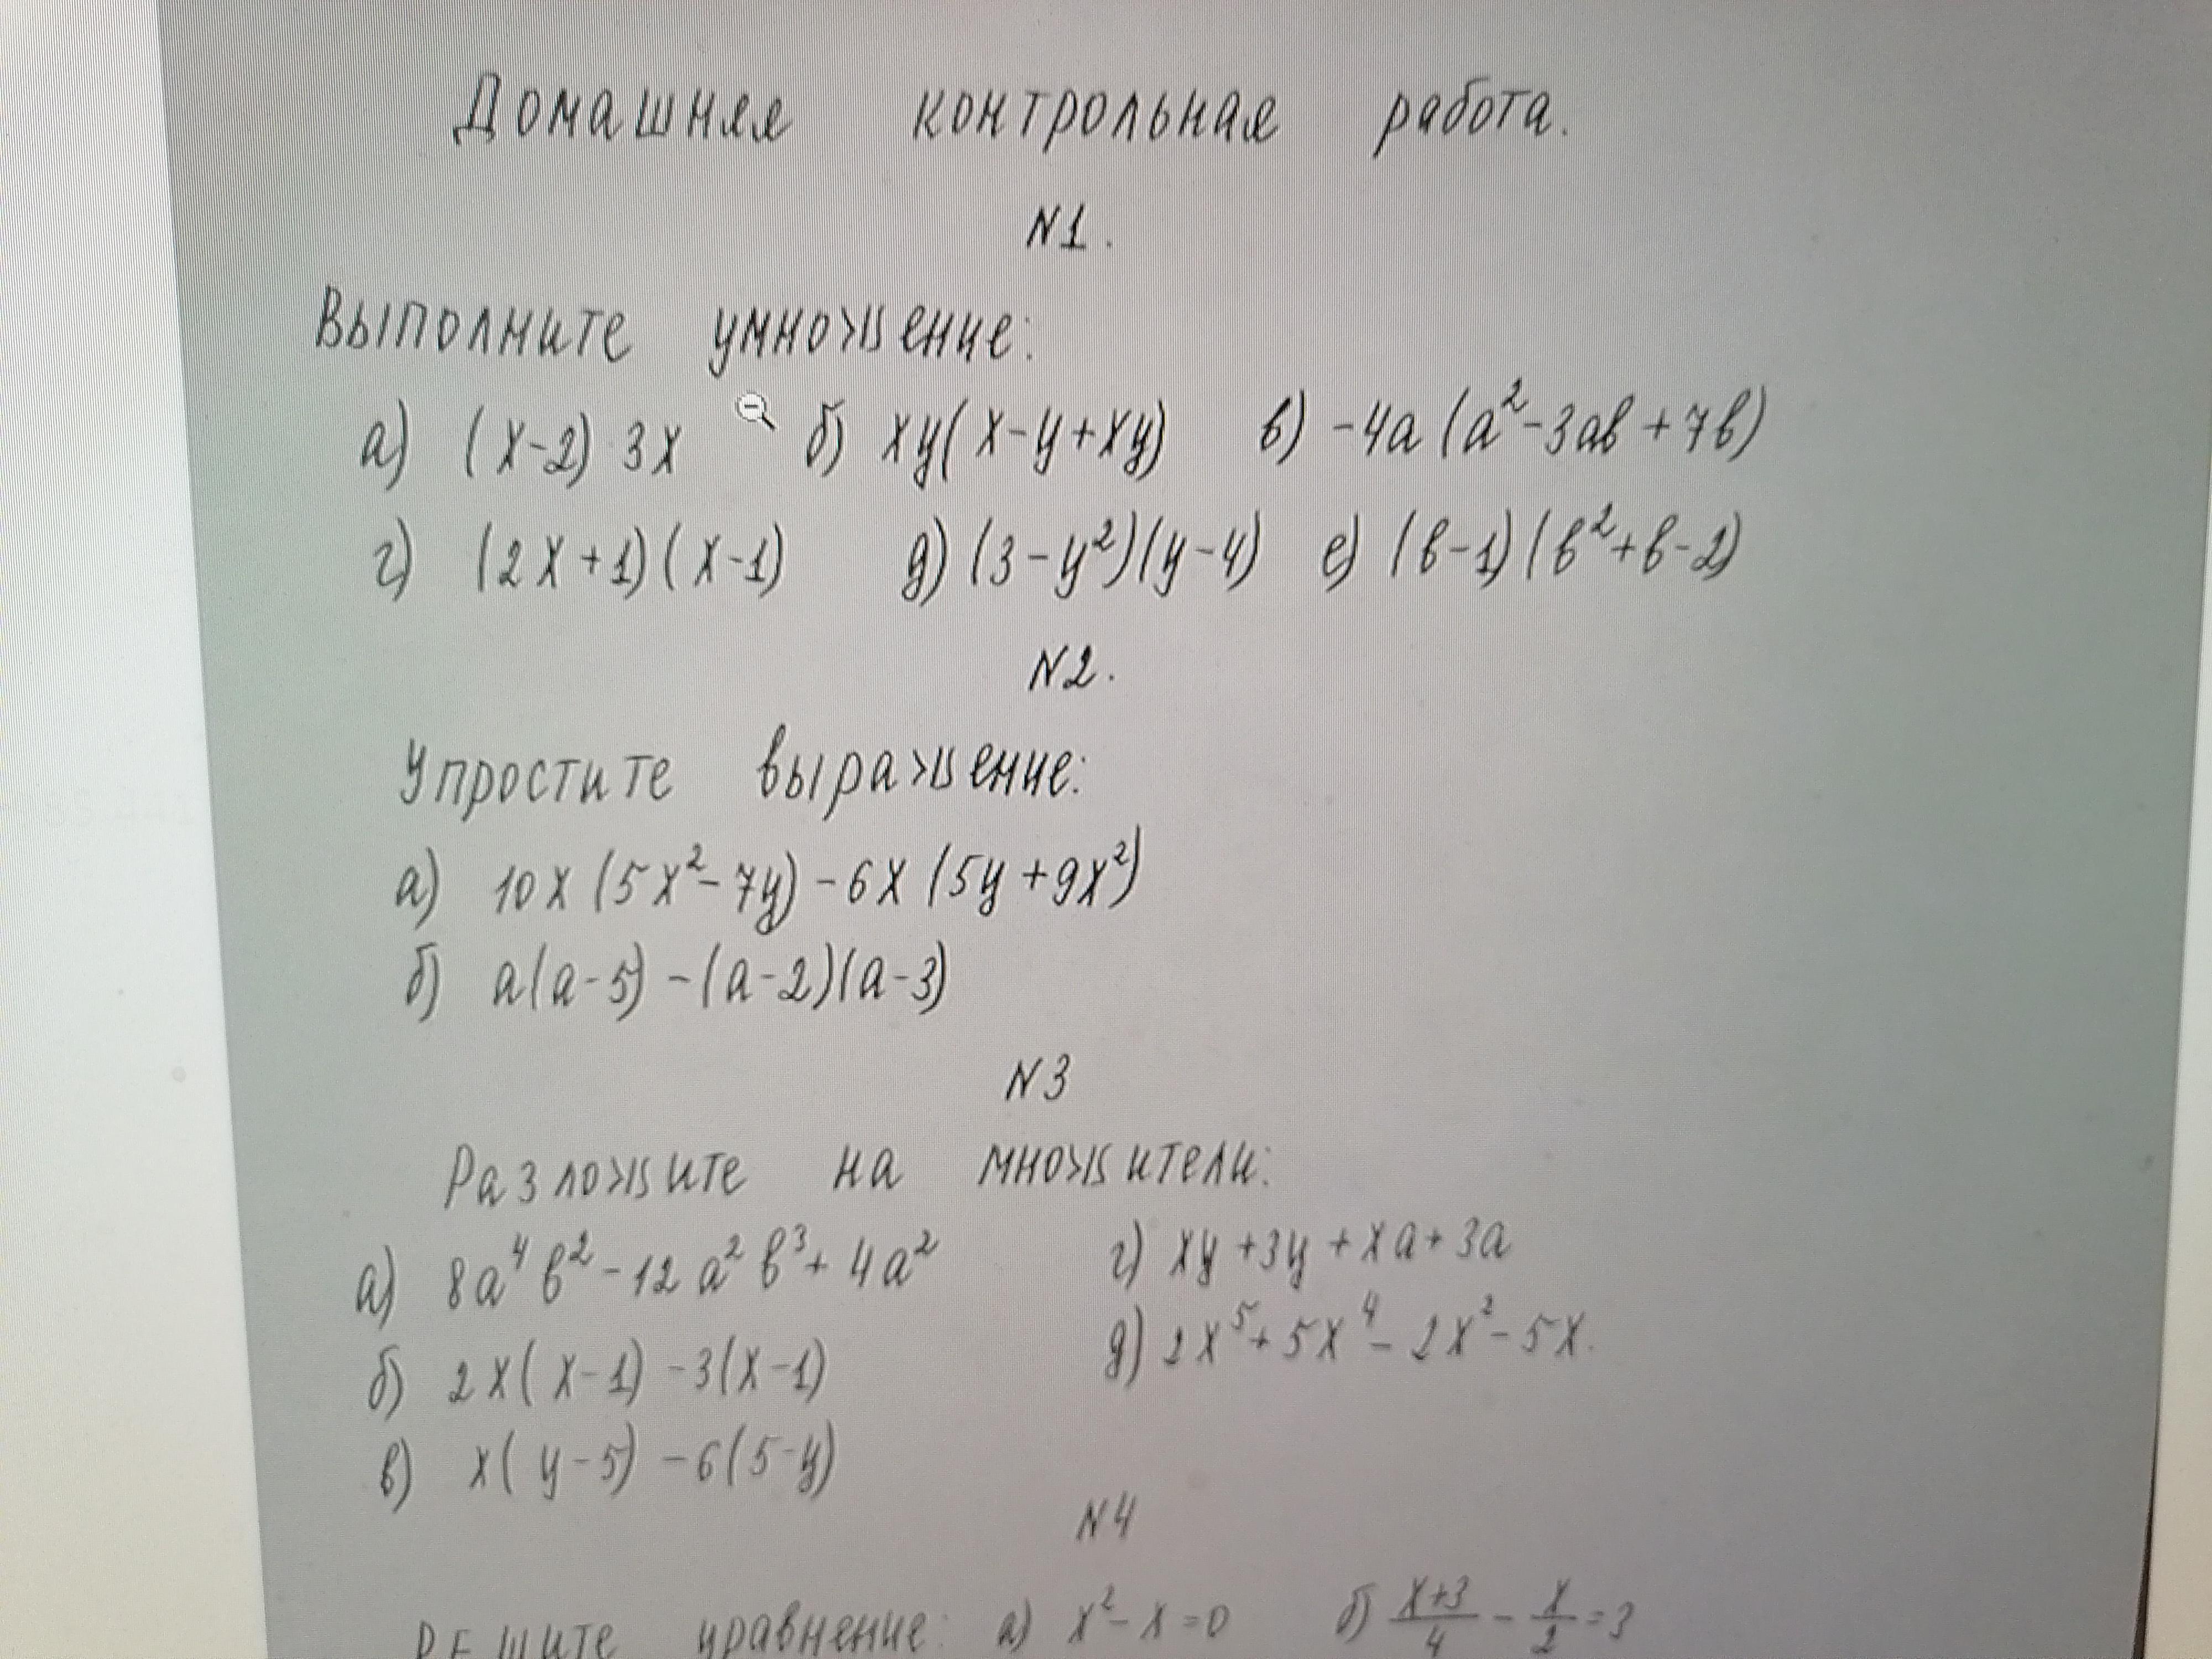 Домашняя контрольная работа.
N1.
Выполните умножение:
а) (x-2) 3x б) xy(x-y+xy) в) -4a (a²-3ab+7b)
г) (2x+1)(x-1) д) (3-y²)(y-4) е) (b-1)(b²+b-2)
N2.
Упростите выражение:
а) 10x (5x²-7y) -6x (5y+9x²)
б) a(a-5) -(a-2)(a-3)
N3
Разложите на множители:
а) 8a⁴b²-12a²b³+4a² г) xy+3y+xa+3a
б) 2x(x-1) -3(x-1) д) 2x⁵+5x⁴-2x²-5x.
в) x(y-5) -6(5-y)
N4
Решите уравнение: а) x²-x=0 б) (x+3)/4 - x/2 = 3